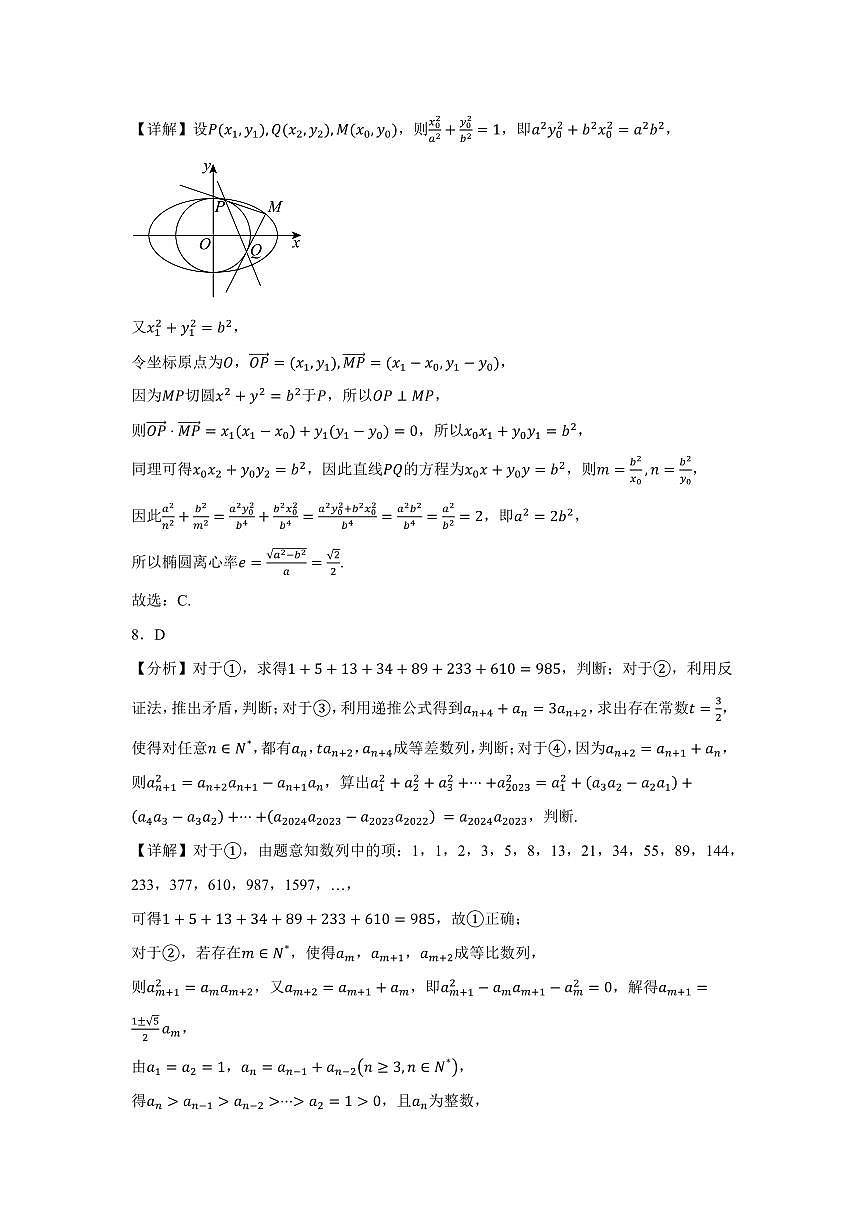 【详解】设P(x₁,y₁),Q(x₂,y₂),M(x₀,y₀)，则x₀²/a²+y₀²/b²=1，即a²y₀²+b²x₀²=a²b²，
y
P
M
O
Q
x
又x₁²+y₁²=b²，
令坐标原点为O，\overrightarrow{OP}=(x₁,y₁),\overrightarrow{MP}=(x₁−x₀,y₁−y₀)，
因为MP切圆x²+y²=b²于P，所以OP⊥MP，
则\overrightarrow{OP}·\overrightarrow{MP}=x₁(x₁−x₀)+y₁(y₁−y₀)=0，所以x₀x₁+y₀y₁=b²，
同理可得x₀x₂+y₀y₂=b²，因此直线PQ的方程为x₀x+y₀y=b²，则m=b²/x₀,n=b²/y₀，
因此a²/n²+b²/m²=a²y₀²/b⁴+b²x₀²/b⁴=(a²y₀²+b²x₀²)/b⁴=a²b²/b⁴=a²/b²=2，即a²=2b²，
所以椭圆离心率e=√(a²−b²)/a=√2/2.
故选：C.
8．D
【分析】对于①，求得1+5+13+34+89+233+610=985，判断；对于②，利用反
证法，推出矛盾，判断；对于③，利用递推公式得到aₙ₊₄+aₙ=3aₙ₊₂，求出存在常数t=3/2，
使得对任意n∈N*，都有aₙ,taₙ₊₂,aₙ₊₄成等差数列，判断；对于④，因为aₙ₊₂=aₙ₊₁+aₙ，
则aₙ₊₁²=aₙ₊₂aₙ₊₁−aₙ₊₁aₙ，算出a₁²+a₂²+a₃²+⋯+a₂₀₂₃²=a₁²+(a₃a₂−a₂a₁)+
(a₄a₃−a₃a₂)+⋯+(a₂₀₂₄a₂₀₂₃−a₂₀₂₃a₂₀₂₂)=a₂₀₂₄a₂₀₂₃，判断.
【详解】对于①，由题意知数列中的项：1，1，2，3，5，8，13，21，34，55，89，144，
233，377，610，987，1597，…，
可得1+5+13+34+89+233+610=985，故①正确；
对于②，若存在m∈N*，使得aₘ，aₘ₊₁，aₘ₊₂成等比数列，
则aₘ₊₁²=aₘaₘ₊₂，又aₘ₊₂=aₘ₊₁+aₘ，即aₘ₊₁²−aₘaₘ₊₁−aₘ²=0，解得aₘ₊₁=
(1±√5)/2 aₘ，
由a₁=a₂=1，aₙ=aₙ₋₁+aₙ₋₂(n≥3,n∈N*)，
得aₙ>aₙ₋₁>aₙ₋₂>⋯>a₂=1>0，且aₙ为整数，